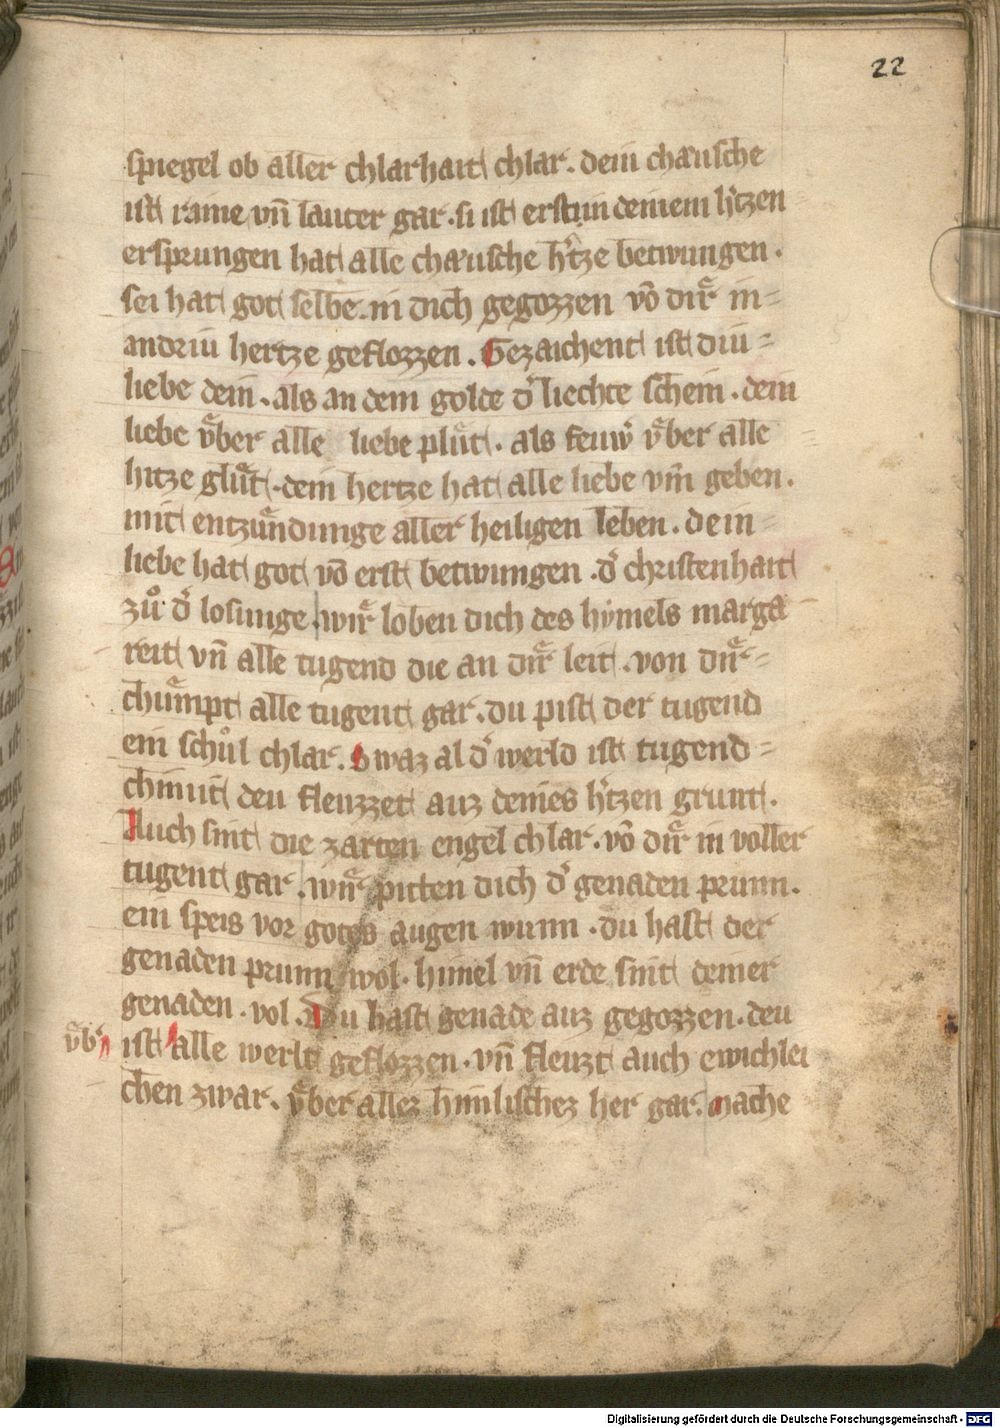 22
spiegel ob aller chlarhait chlar. dein chaͤusche
ist raine vn̄ lauter gar. si ist erst in deinem h̓tzen
ersprungen hat alle chaͤusche h̓tze betwungen.
sei hat got selbe in dich gegozzen vō dir in=
andriu hertze geflozzen. Gezaichent ist diu=
liebe dein. als an dem golde d̓ liechte schein. dein
liebe vͤber alle liebe pluͤt. als feuw̓ vͤber alle
hitze gluͤt. dein hertze hat alle liebe vm̄ geben.
mit entzuͤndunge aller heiligen leben. dein=
liebe hat got vō erst betwungen. d̓ christenhait
zuͦ d̓ losunge. wir loben dich des hymels marga
reit vn̄ alle tugend die an dir leit. von dir=
chuͤmpt alle tugent gar. du pist der tugend
ein schuͦl chlar. Swaz al d̓ werld ist tugend=
chunt deu fleuzzet auz deines h̓tzen grunt.
Auch sint die zarten engel chlar. vō dir in voller
tugent gar. wir pitten dich d̓ genaden prunn.
ein speis vor gotes augen wunn. du hast der
genaden prunn wol. himel vn̄ erde sint deiner
genaden. vol. Du hast genade auz gegozzen. deu
vͤb̓ ist alle werlt geflozzen. vn̄ fleuzt auch ewichlei
chen zwar. vͤber allez himlischez her gar. mache
Digitalisierung gefördert durch die Deutsche Forschungsgemeinschaft - DFG